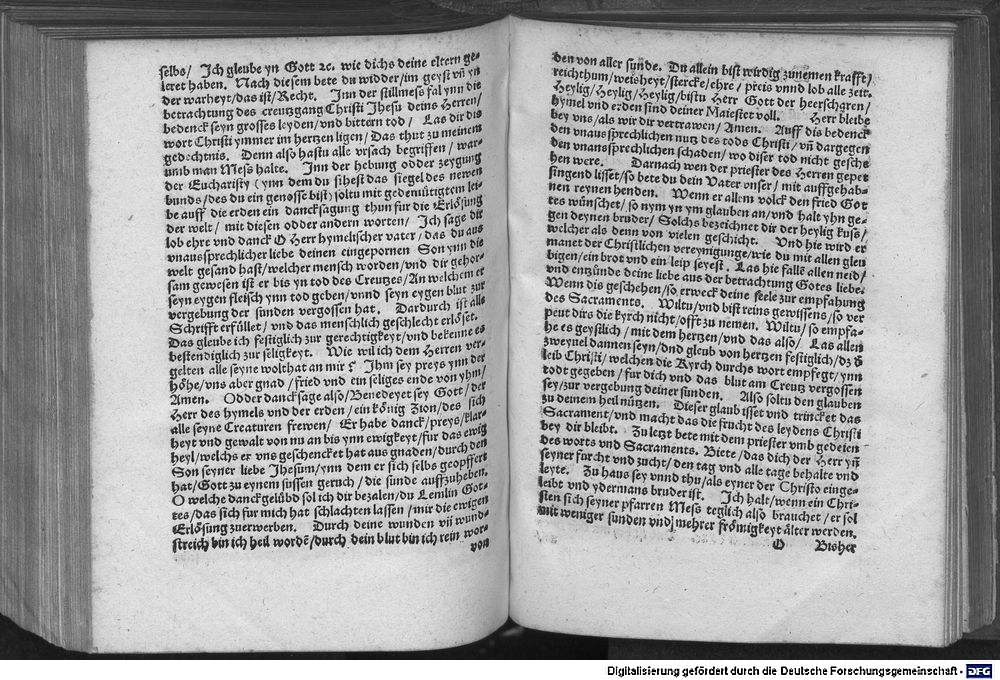 selbs/ Ich gleube yn Gott ꝛc. wie dichs deine eltern ge-
leret haben. Nach diesem bete du widder/im geyst vñ yn
der warheyt/das ist/Recht. Inn der stillmess fal ynn die
betrachtung des creutzgang Christi Jhesu deins Herren/
bedenck seyn grosses leyden/vnd bittern tod/ Las dir dis
wort Christi ymmer im hertzen ligen/Das thut zu meinem
gedechtnis. Denn also hastu alle vrsach begriffen/ war-
umb man Mess halte. Inn der hebung odder zeygung
der Eucharisty (ynn dem du sihest das siegel des newen
bunds/des du ein genosse bist) soltu mit gedemütigtem lei-
be auff die erden ein dancksagung thun fur die Erlösung
der welt/ mit diesen odder andern worten/ Ich sage dir
lob ehre vnd danck O Herr hymelischer vater/das du aus
vnaussprechlicher liebe deinen eingepornen Son ynn die
welt gesand hast/welcher mensch worden/vnd dir gehor-
sam gewesen ist er bis yn tod des Creutzes/An welchem er
seyn eygen fleisch ynn tod geben/vnnd seyn eygen blut zur
vergebung der sunden vergossen hat. Dardurch ist alle
Schrifft erfüllet/ vnd das menschlich geschlecht erlöset.
Das gleube ich festiglich zur gerechtigkeyt/vnd bekenne es
bestendiglich zur seligkeyt. Wie wil ich dem Herren ver-
gelten alle seyne wolthat an mir? Ihm sey preys ynn der
höhe/vns aber gnad/fried vnd ein seliges ende von yhm/
Amen. Odder dancksage also/Benedeyet sey Gott/der
Herr des hymels vnd der erden/ein könig Zion/des sich
alle seyne Creaturen frewen/ Er habe danck/preys/klar-
heyt vnd gewalt von nu an bis ynn ewigkeyt/fur das ewig
heyl/welchs er vns geschencket hat aus gnaden/durch den
Son seyner liebe Jhesum/ynn dem er sich selbs geopffert
hat/Gott zu eynem sussen geruch/die sunde auffzuheben.
O welche danckgelübd sol ich dir bezalen/du Lemlin Got-
tes/das sich fur mich hat schlachten lassen/mir die ewigen
Erlösung zuerwerben. Durch deine wunden vñ wund-
streich bin ich heil wordē/durch dein blut bin ich rein wor-
von
den von aller sunde. Du allein bist wirdig zunemen krafft/
reichthum/weisheyt/stercke/ehre/preis vnnd lob alle zeit.
Heylig/Heylig/Heylig/bistu Herr Gott der heerscharen/
hymel vnd erden sind deiner Maiestet voll. Herr bleibe
bey vns/als wir dir vertrawen/Amen. Auff dis bedenck
den vnaussprechlichen nutz des tods Christi/vñ dargegen
den vnaussprechlichen schaden/wo diser tod nicht gesche
hen were. Darnach wen der priester des Herren gepet
singend lisset/so bete du dein Vater vnser/mit auffgehab-
nen reynen henden. Wenn er allem volck den fried Got
tes wünschet/so nym yn ym glauben an/vnd halt yhn ge-
gen deynen bruder/Solchs bezeichnet dir der heylig kuss/
welcher als denn von vielen geschicht. Vnd hie wird er
manet der Christlichen vereynigunge/wie du mit allen gleu
bigen/ein brot vnd ein leip seyest. Las hie falle allen neid/
vnd entzünde deine liebe aus der betrachtung Gotes liebe.
Wenn die geschehen/so erweck deine seele zur empfahung
des Sacraments. Wiltu/vnd bist reins gewissens/so ver
peut dirs die kyrch nicht/offt zu nemen. Wiltu/so empfa-
he es geystlich/mit dem hertzen/vnd das also/ Las allen
zweyuel dannen seyn/vnd gleub von hertzen festiglich/dz d
leib Christi/welchen die Kyrch durchs wort empfegt/ynn
todt gegeben/fur dich vnd das blut am Creutz vergossen
sey/zur vergebung deiner sunden. Also soltu den glauben
zu deinem heil nützen. Dieser glaub isset vnd trincket das
Sacrament/vnd macht das die frucht des leydens Christi
bey dir bleibt. Zu letzt bete mit dem priester vmb gedeien
des worts vnd Sacraments. Biete/das dich der Herr yñ
seyner furcht vnd zucht/den tag vnd alle tage behalte vnd
leyte. Zu haus sey vnnd thu/als eyner der Christo einge-
leibt vnd ydermans bruder ist. Ich halt/wenn ein Chri-
sten sich seyner pfarren Mess teglich also brauchet/er sol
mit weniger sunden vnd mehrer frömigkeyt älter werden.
O Bisher
Digitalisierung gefördert durch die Deutsche Forschungsgemeinschaft - DFG